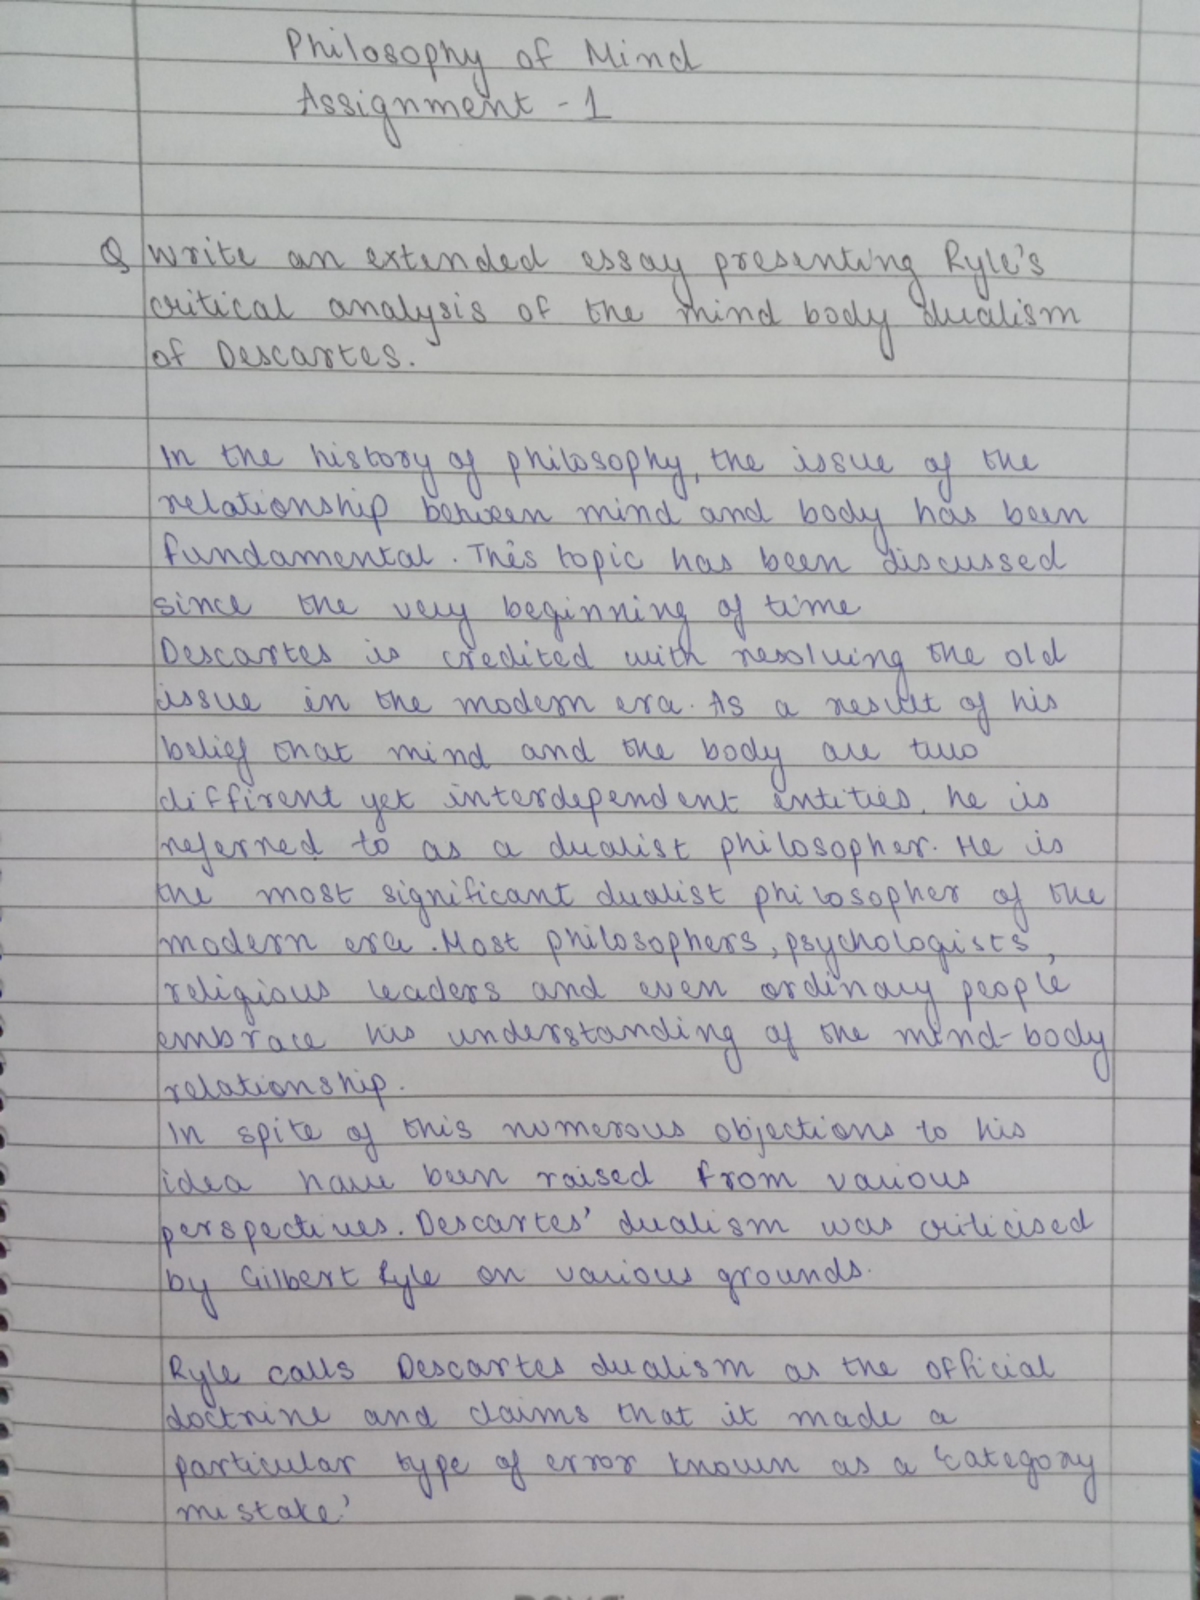 Philosophy of Mind
Assignment - 1
Q Write an extended essay presenting Ryle's
critical analysis of the mind body dualism
of Descartes.
In the history of philosophy, the issue of the
relationship between mind and body has been
fundamental. This topic has been discussed
since the very beginning of time
Descartes is credited with resolving the old
issue in the modern era. As a result of his
belief that mind and the body are two
diffirent yet interdependent entities, he is
referred to as a dualist philosopher. He is
the most significant dualist philosopher of the
modern era. Most philosophers, psychologists,
religious leaders and even ordinary people
embrace his understanding of the mind-body
relationship.
In spite of this numerous objections to his
idea have been raised from various
perspectives. Descartes' dualism was criticised
by Gilbert Ryle on various grounds.
Ryle calls Descartes dualism as the official
doctrine and claims that it made a
particular type of error known as a 'category
mistake.'